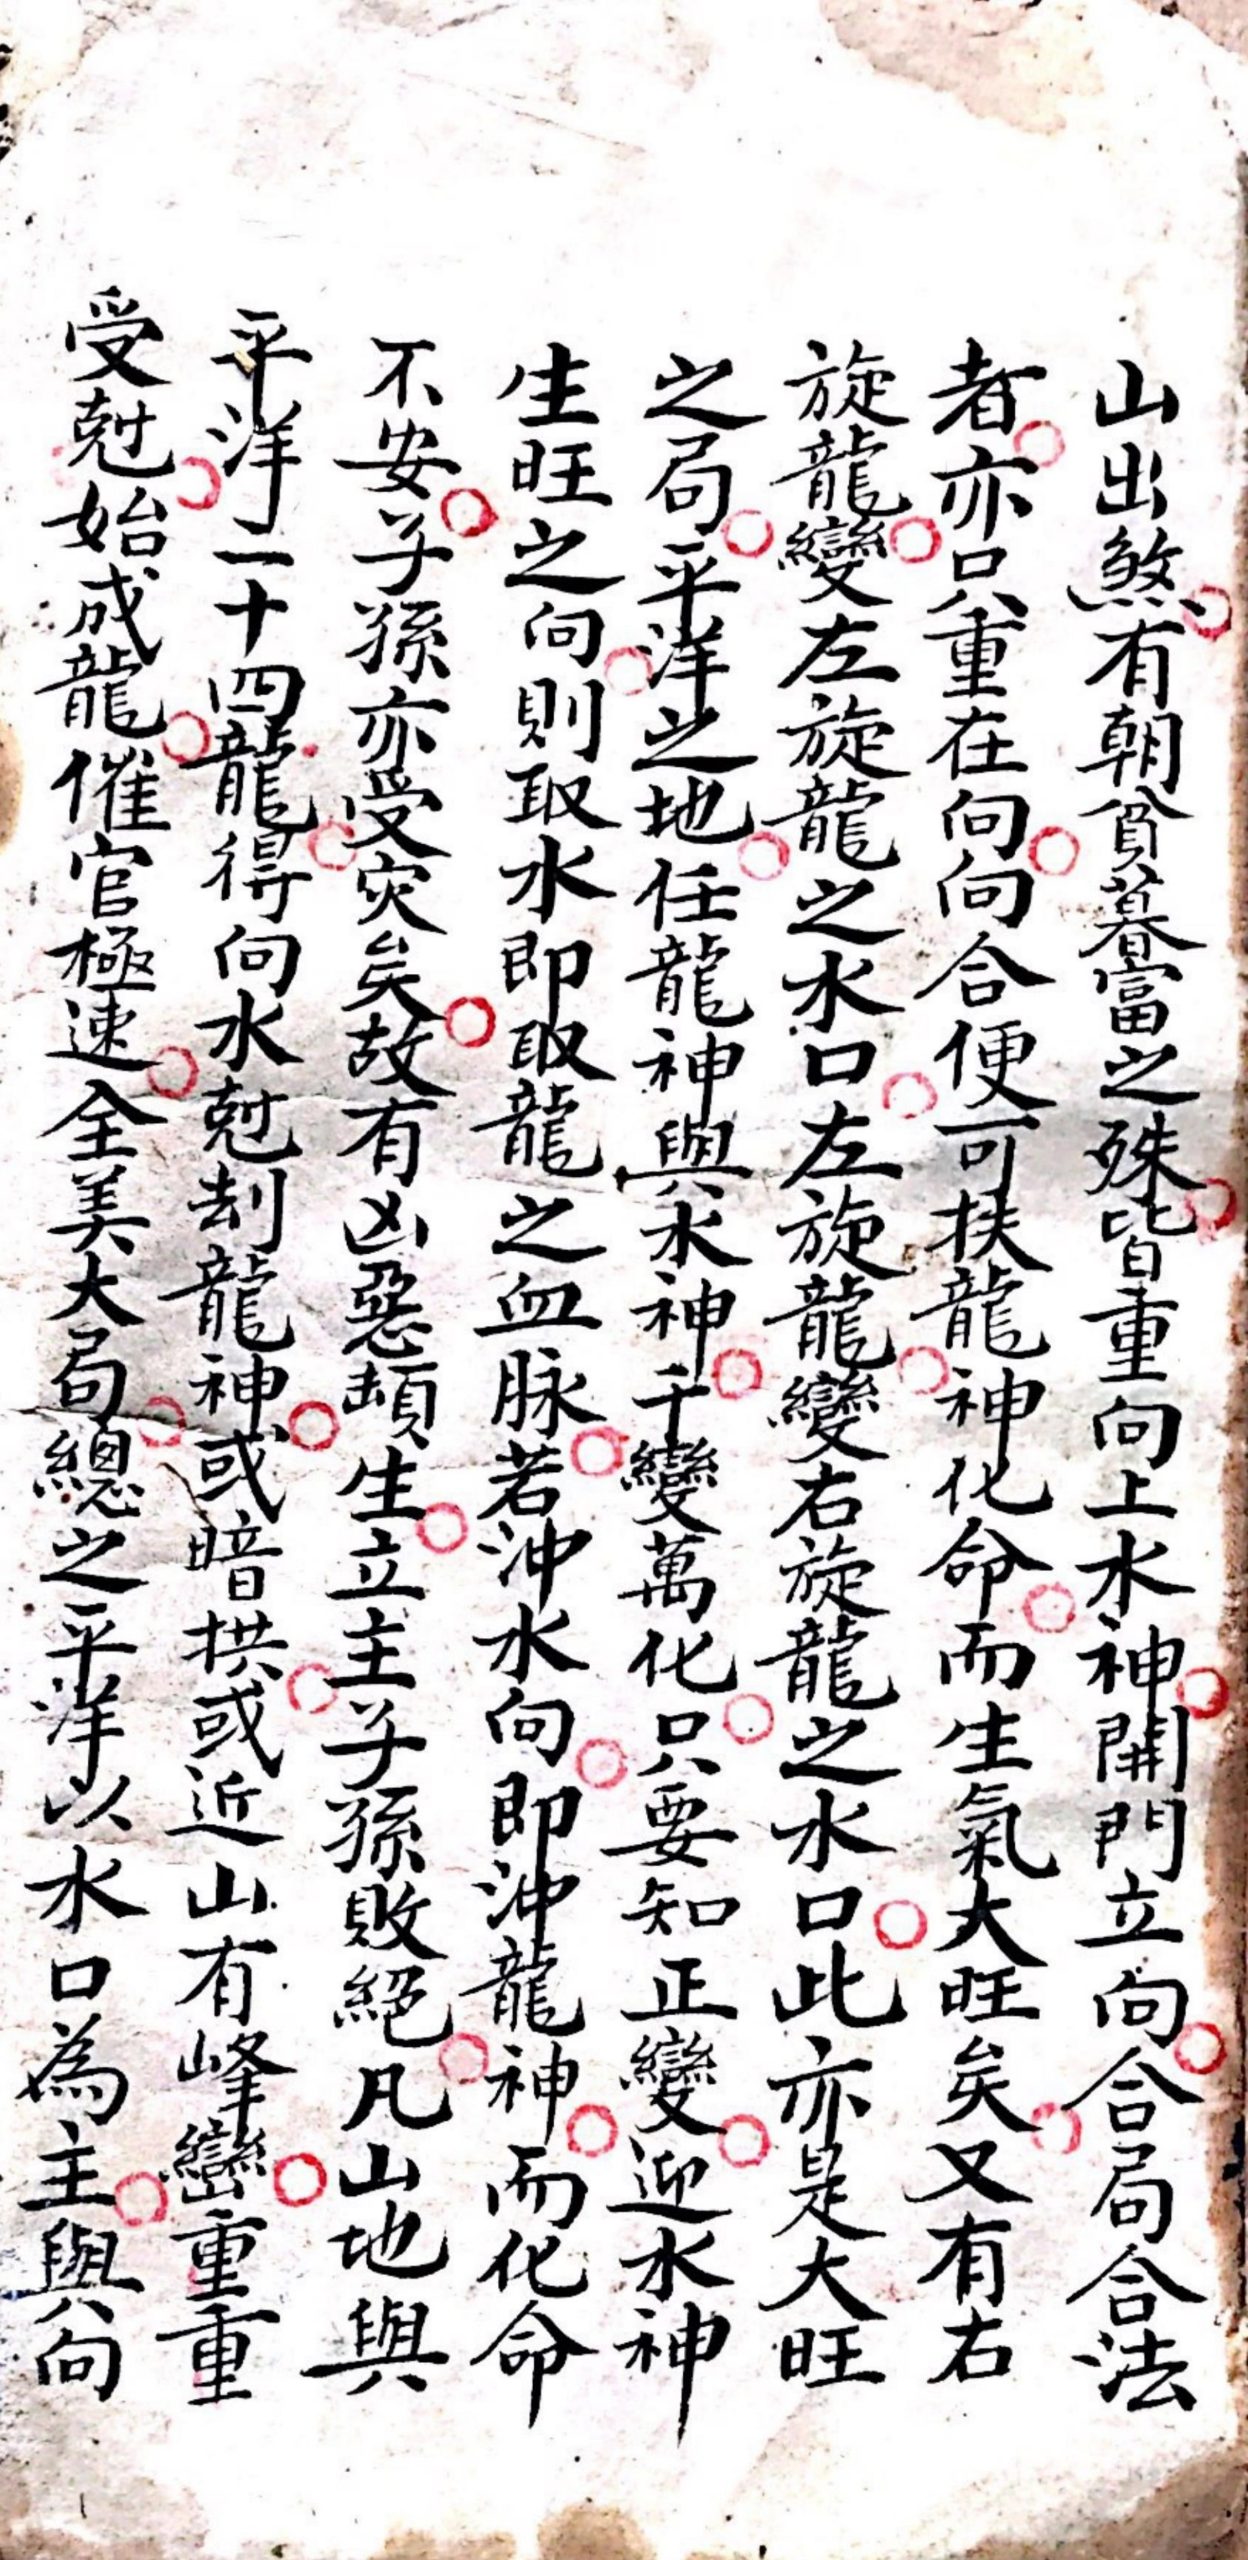 山出煞有朝貧暮富之殊皆重向上水神開門立向合局合法
者亦只重在向向合便可扶龍神化命而生氣大旺矣又有右
旋龍變左旋龍之水口左旋龍變右旋龍之水口此亦是大旺
之局平洋之地任龍神與水神千變萬化只要知正變迎水神
生旺之向則取水即取龍之血脉若沖水向即沖龍神而化命
不安子孫亦受灾矣故有凶惡頓生立主子孫敗絕凡山地與
平洋二十四龍得向水尅刦龍神或暗拱或近山有峰巒重重
受尅始成龍催官極速全美大局總之平洋以水口為主與向